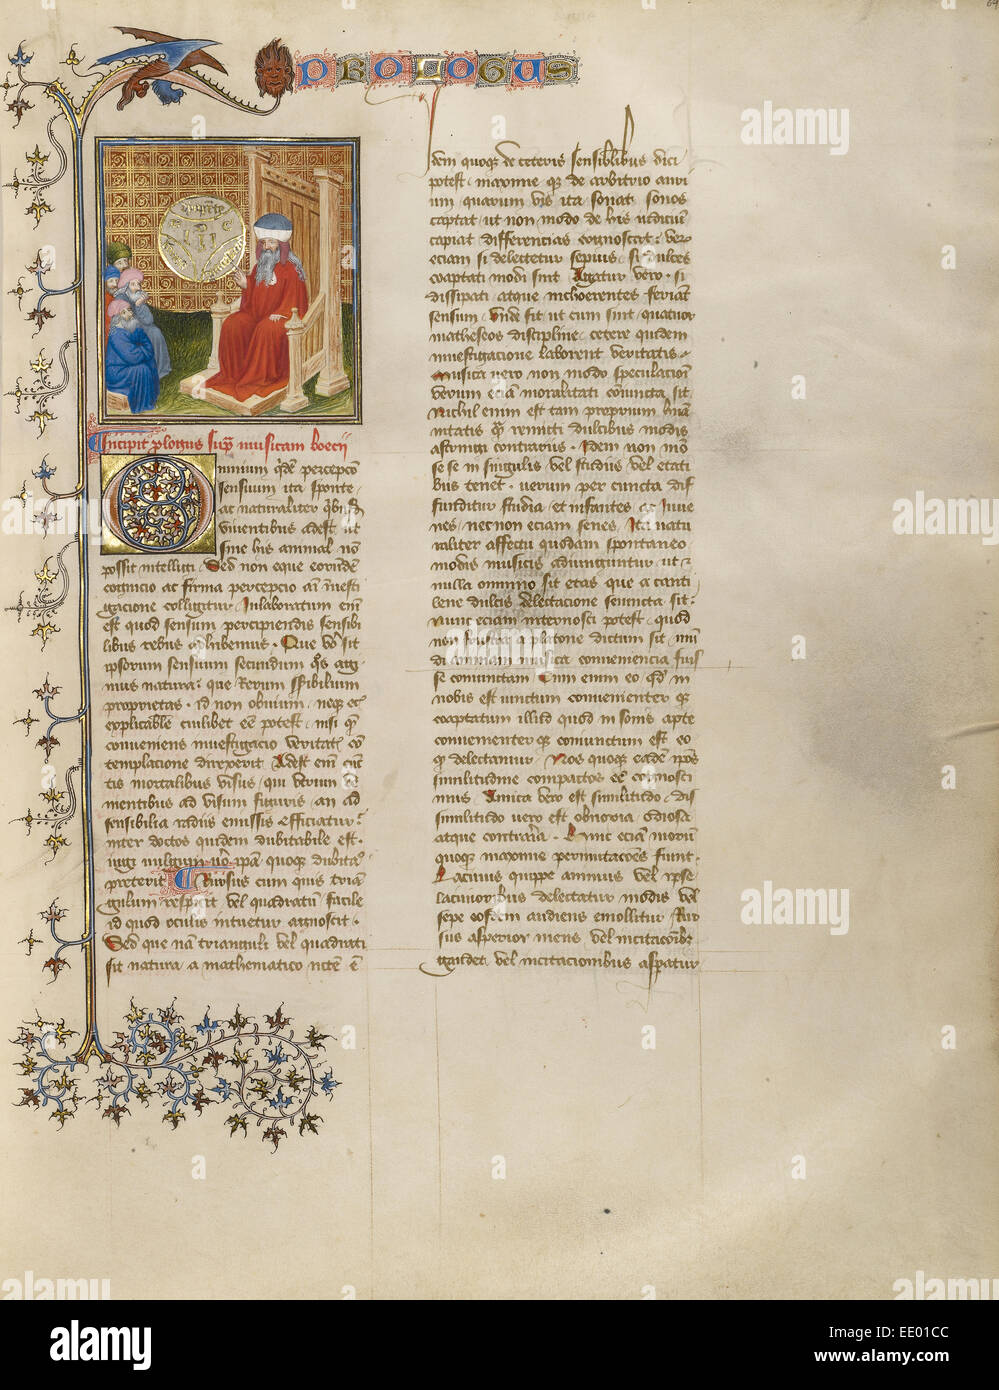 PROLOGUS
Incipit plogus sup musicam boecii
Omnium qdē percepcō
sensuum ita sponte
ac naturaliter qbusdā
viventibus adest ut
sine his animal nō
possit intelligi. Sed non eque eorūdē
cognicio ac firma percepcio aī īvesti
gacione colligitur. Inlaboratum eīm
est quod sensum percipiendis sensibi
libus rebus adhibemus. Que vō sit
ipsorum sensuum secundum qos agi
mus natura: que rerum sēsibilium
proprietas. id non obvium. neqz
explicabile cuilibet eē potest. nisi qm
conveniens investigacio veritatis cō
templacione direxerit. Adest eīm cūc
tis mortalibus visus. qui utrum ve
nientibus ad visum figuris. an ad
sensibilia radiis emissis efficiatur:
inter doctos quidem dubitabile est.
vulgum vō ipsā quoqz dubitac
preterit. Rursus cum quis triā
gulum respicit vel quadratū facile
id quod oculis intuetur agnoscit.
Sed que nā trianguli vel quadrati
sit natura a mathematico
Idem quoqz de ceteris sensibilibus dici
potest. maxime qz de arbitrio auri
um quarum vis ita sonat sonos
captat ut non modo de his iudiciū
capiat differencias cognoscat: ve
eciam si delectetur sepius. si dulces
coaptati modi sint. Agatur vero. si
dissipati atque incoherentes feriant
sensum. Unde fit ut cum sint quatuor
matheseos discipline. cetere quidem
investigacione laborent veritatis.
Musica vero non modo speculacioni
verum eciam moralitati coniuncta sit.
Nichil enim est tam proprium humā
nitatis qm remitti dulcibus modis
astringi contrariis. Idem non mō
se se in singulis vel studiis vel etati
bus tenet. verum per cuncta dif
funditur studia et infantes ac iuve
nes. nec non eciam senes. Ita natu
raliter affectu quodam spontaneo
modis musicis adiunguntur. ut
nulla omnino sit etas que a canti
lene dulcis delectacione seiuncta sit.
Nunc eciam internosci potest. quod
non frustra a platone dictum sit mū
di animam musica conveniencia fuis
se coniunctam. Cum enim eo qd in
nobis est iunctum convenienter qz
coaptatum illud quod in sonis apte
convenienterqz coniunctum est eo
qz delectamur. Nos quoqz eadē nos
similitudine compactos eē cognosci
mus. Amica vero est similitudo. dis
similitudo vero est obnoxia odiosa
atque contraria. Hinc eciam morum
quoqz maxime permutaciones fiunt.
Lacivus quippe animus vel ipse
lacivioribus delectatur modis vel
sepe eosdem audiens emollitur. Rur
sus asperior mens vel incitacioribz
gaudet vel incitacionibus asperatur
alamy
alamy
alamy
alamy
alamy
alamy stock photo
EE01CC
www.alamy.com